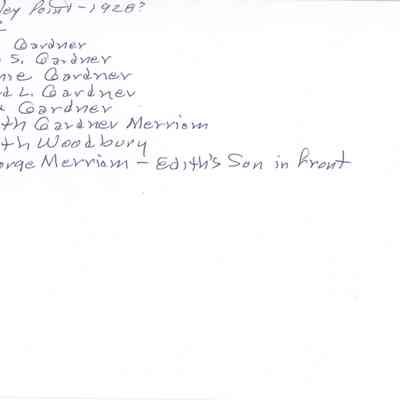 ley Point - 1928?
Gardner
S. Gardner
nie Gardner
d L. Gardner
Gardner
th Gardner Merriam
th Woodbury
orge Merriam - Edith's Son in Front